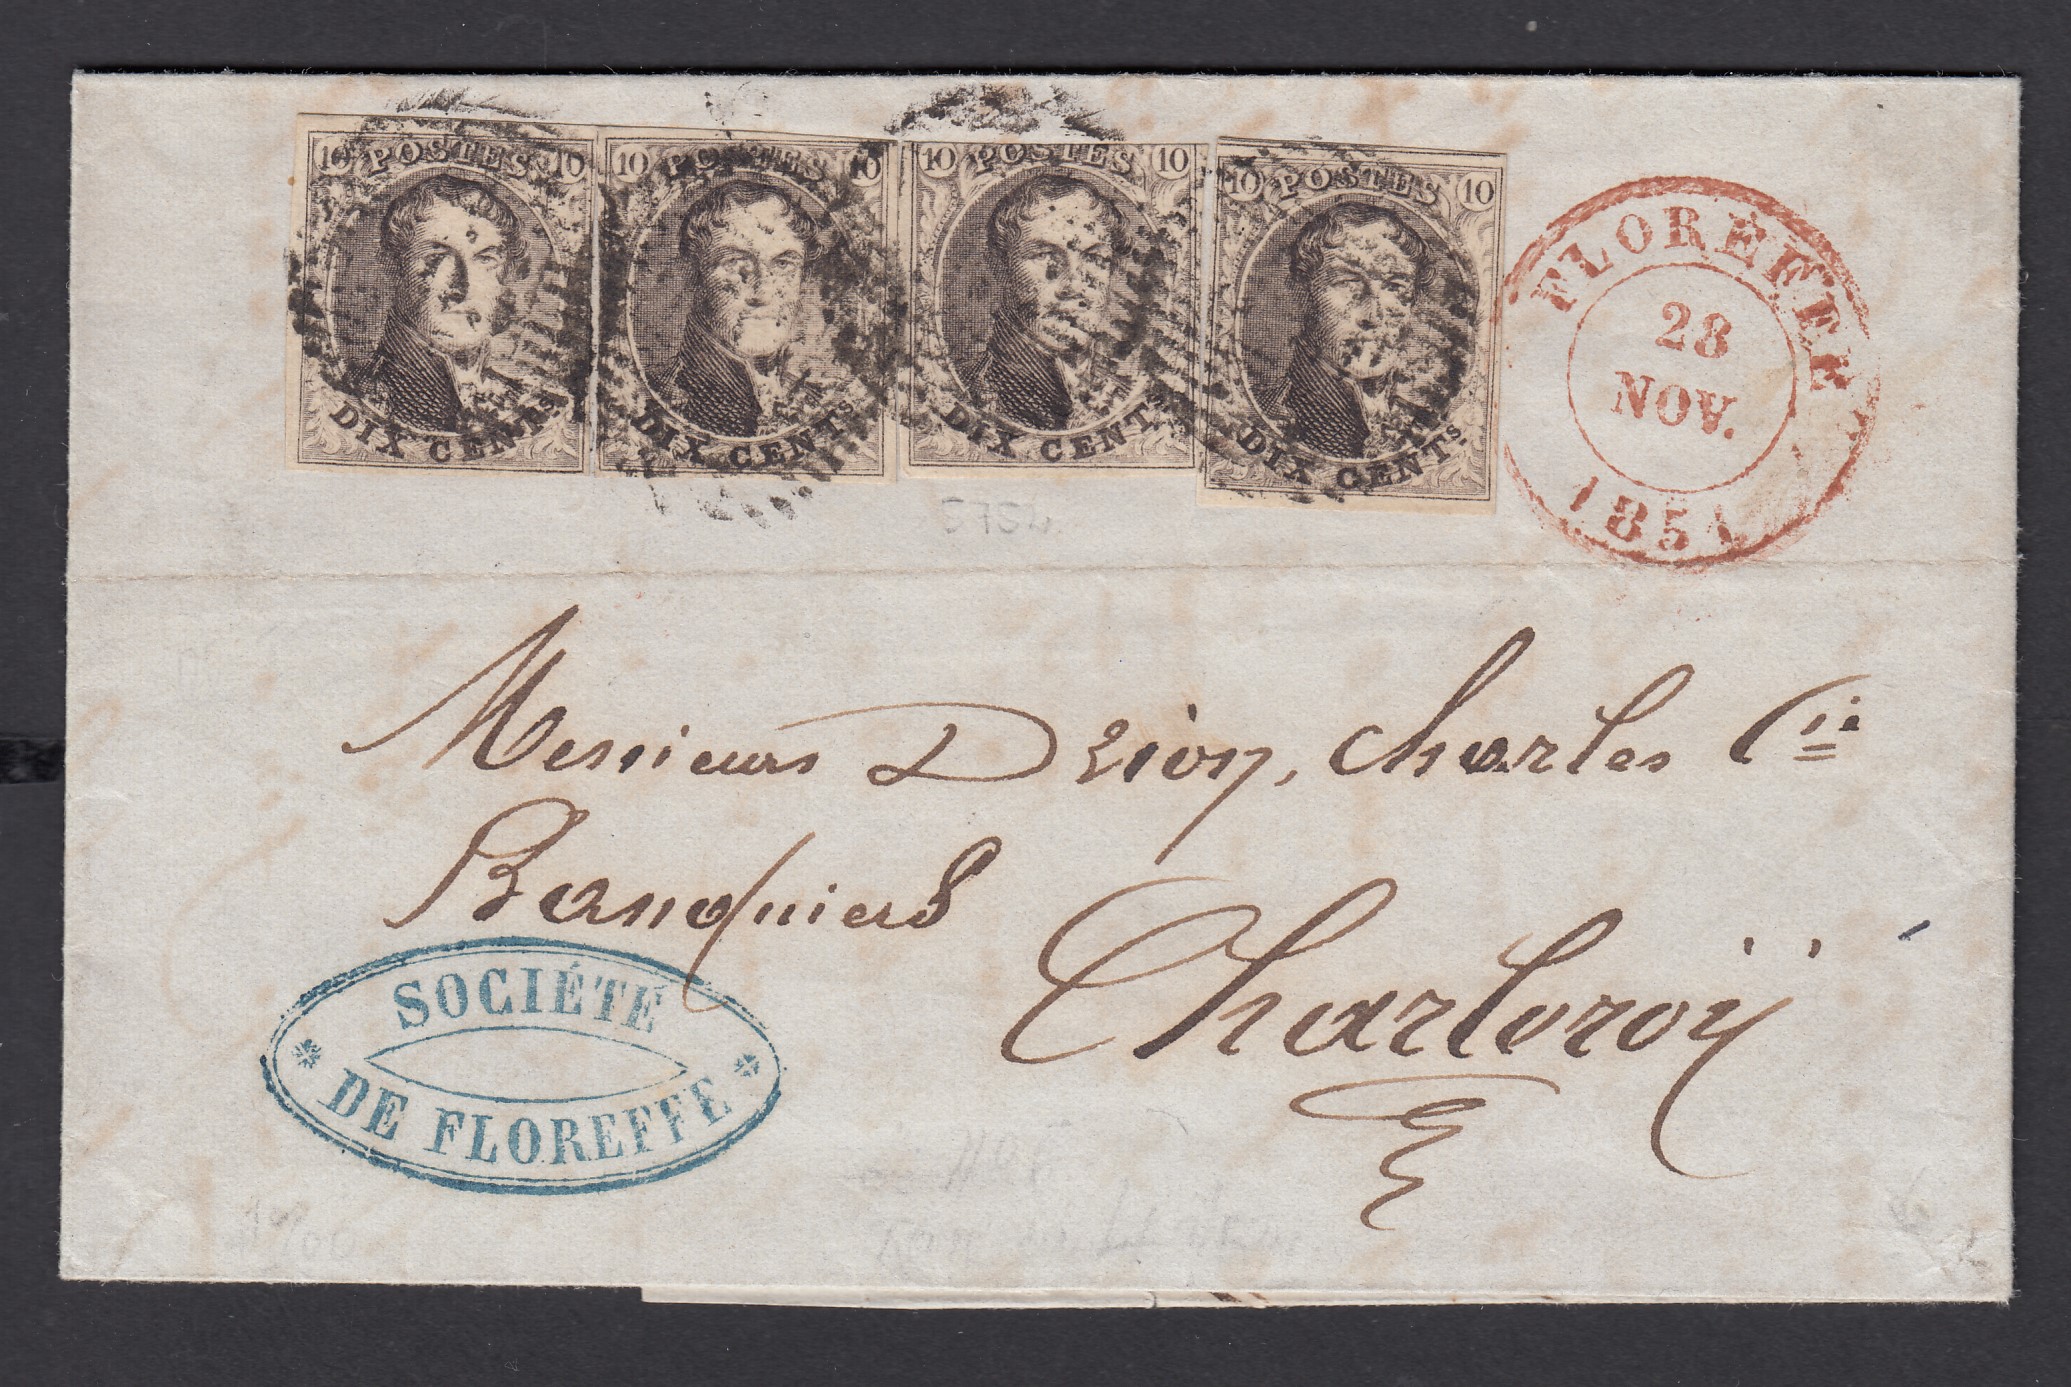 10 POSTES 10
DIX CENTs.
10 POSTES 10
DIX CENTs.
10 POSTES 10
DIX CENT
10 POSTES 10
DIX CENTs.
FLOREFFE
28
NOV.
1851
Messieurs Drion, Charles Cie
Banquiers
Charleroÿ
SOCIÉTÉ
DE FLOREFFE